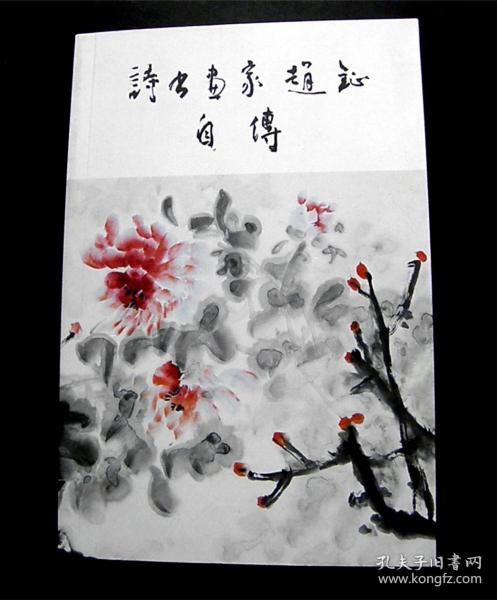 詩书畫家趙鉦
自傳
孔夫子旧书网
www.kongfz.com